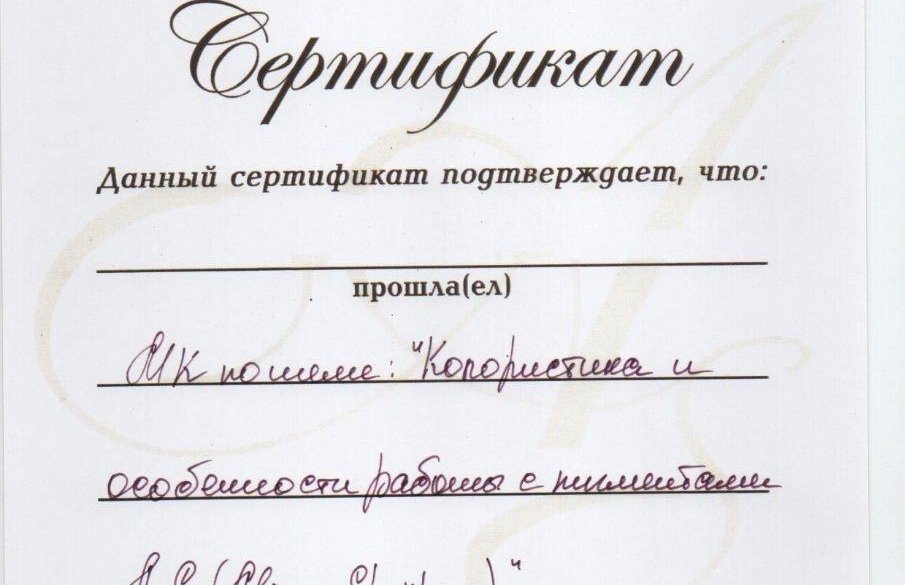 Сертификат
Данный сертификат подтверждает, что:
прошла(ел)
МК по теме: "Колористика и
особенности работы с пигментами